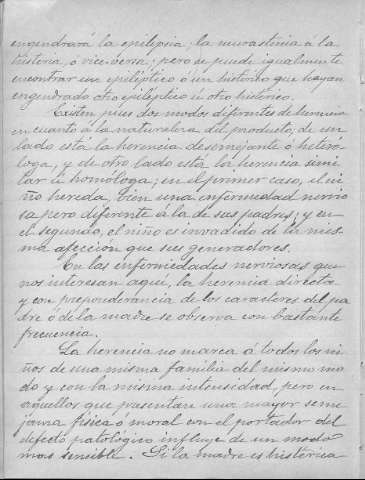 engendrará la epilepsia; la neurastenia á la
histeria, ó vice-versa; pero se puede igualmente
encontrar un epiléptico ó un histérico que hayan
engendrado otro epiléptico ú otro histérico.
Existen pues dos modos diferentes de herencia
en cuanto á la naturaleza del producto, de un
lado está la herencia desemejante ó heteró-
loga, y de otro lado está la herencia simi-
lar ú homóloga; en el primer caso, el ni-
ño hereda, bien una enfermedad nervio
sa pero diferente á la de sus padres; y en
el segundo, el niño es invadido de la mis-
ma afección que sus generadores.
En las enfermedades nerviosas que
nos interesan aquí, la herencia directa
y con preponderancia de los caracteres del pa
dre ó de la madre se observa con bastante
frecuencia.
La herencia no marca á todos los ni-
ños de una misma familia del mismo mo
do y con la misma intensidad, pero en
aquellos que presentan una mayor seme
janza física ó moral con el portador del
defecto patológico influye de un modo
mas sensible. Si la madre es histérica